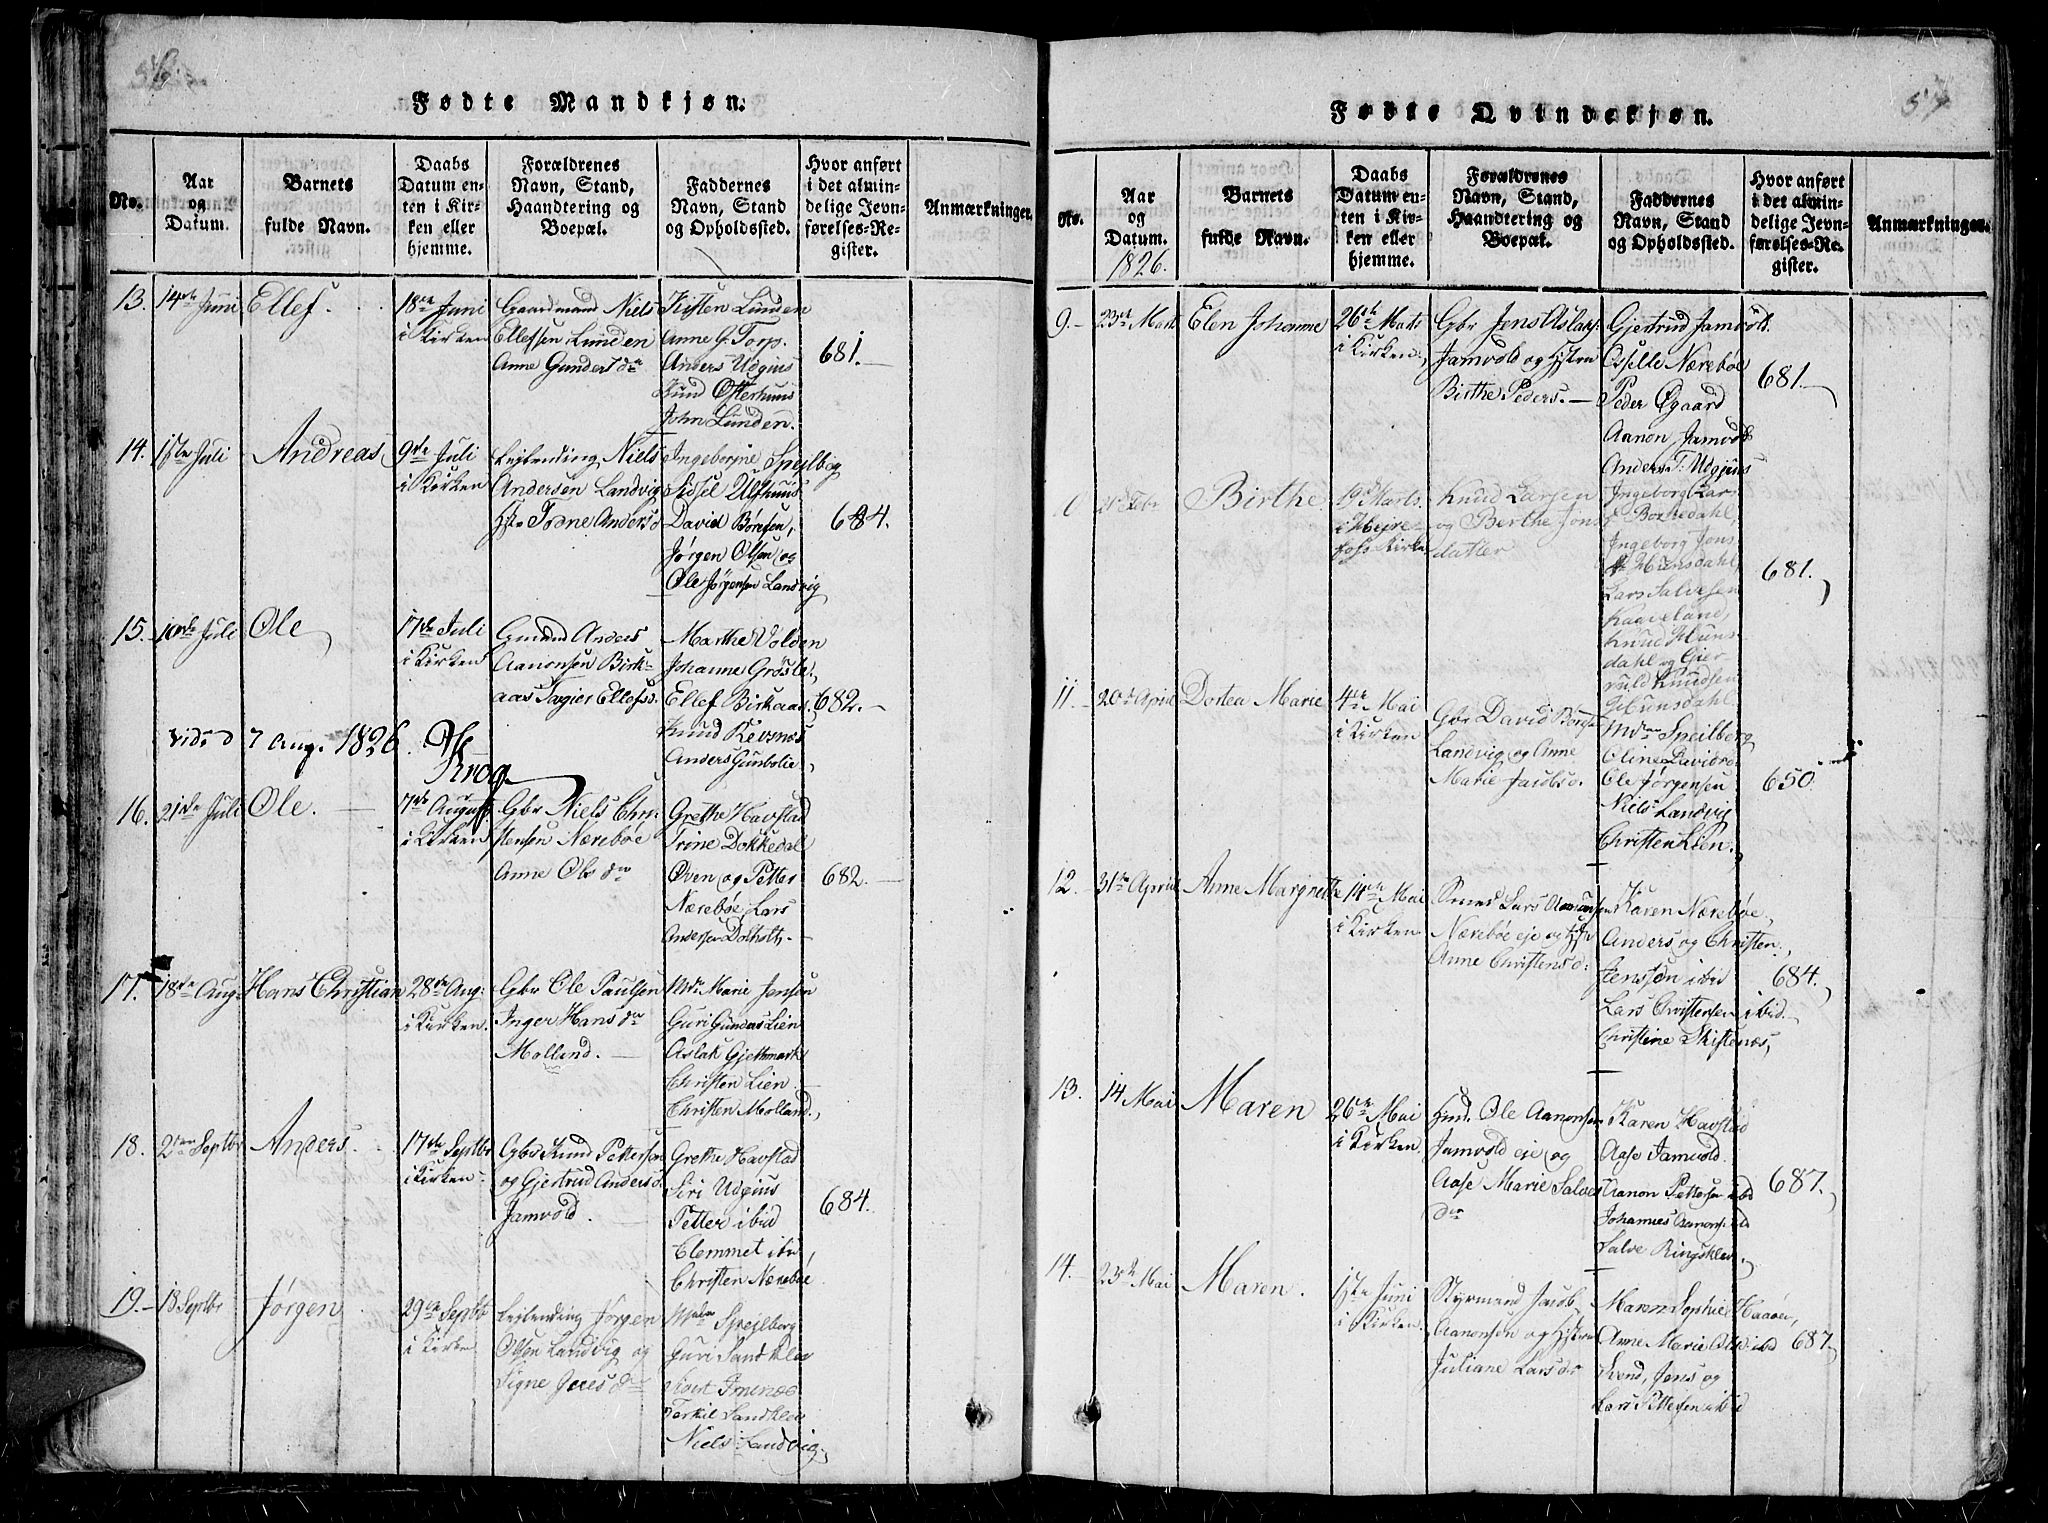 56.
Fødte Mandkjøn.
No.
Aar
og
Datum.
Barnets
fulde Navn.
Daabs
Datum en-
ten i Kir-
ken eller
hjemme.
Forældrenes
Navn, Stand,
Haandtering og
Boepæl.
Faddernes
Navn, Stand
og Opholdssted.
Hvor anført
i det almin-
delige Jevn-
førelses-Re-
gister.
Anmærkninger.
13.
14de Juni
Ellef.
18de Juni
i Kirken
Gaardmand Niels
Ellefsen Lunden
Anne Gunders dr
Kisten Lunden
Anne G. Torp.
Anders Udgius
Knud Østerhuus
John Lunden.
681.
14.
1ste Juli
Andreas
9de Juli
i Kirken
Lejlending Niels
Andersen Landvig
Hst. Torne Anders d
Ingeborjne Spejlbog
Sidsel Ulfhuus
David Børesen,
Jørgen Olsen og
Ole Jørgensen Landvig
684.
15.
10de Juli
Ole
17de Juli
i Kirken
Gmand Anders
Aanonsen Birk-
aas Tagier Ellefsd.
Marthe Volden
Johanne Grøsle,
Ellef Birkaas,
Knud Revsnes
Anders Gunbolie,
682.
vid: d 7 Aug. 1826. O
Krog
16.
21de Juli
Ole.
7de August
i Kirken
Gbr Niels Chri-
stensen Nærebøe
Anne Ols dr
Grethe Havstad
Trine Dokkedal
Oven og Petter
Nærebøe Lars
Andersen Dolholt.
682.
17.
18de Aug.
Hans Christian
28de Aug:
i Kirken.
Gbr Ole Paulsen
Inger Hans dr
Molland.
Mdm Marie Jensen
Guri Gunders Lien
Aslak Gjethmark
Christen Lien
Christen Molland,
18.
2den Septbr
Anders.
17de Septbr
i Kirken.
Gbr Knud Pettersen
og Gjertrud Anders d.
Jamvold.
Grethe Havstad
Siri Udgius
Petter ibid
Clemmet ibi
Christen Nærebøe
684.
19.
18 Septbr
Jørgen
29de Septbr
i Kirken
Lejlending Jørgen
Olsen Landvig og
Signe Jens dr
Mdm Spejlberg
Guri Sandkleo
Koert Imenæs
Terkil Sandkleo
Niels Landvig,
57
Fødte Qvindekjøn.
No.
Aar
og
Datum.
1826.
Barnets
fulde Navn.
Daabs
Datum en-
ten i Kir-
ken eller
hjemme.
Forældrenes
Navn, Stand,
Haandtering og
Boepæl.
Faddernes
Navn, Stand
og Opholdssted.
Hvor anført
i det almin-
delige Jevn-
førelses-Re-
gister.
Anmærkninger.
9.
23de Marts
Elen Johanne
26de Marts
i Kirken.
Gbr Jens Aslaks.
Jamvold og Hsten
Birthe Peders.
Gjertrud Jamvold.
Osselle Nærebøe
Peder Øgaard
Aanon Jamvold
Anders T. Udgjuus
681.
0
21 Febr
Birthe
19d Marts
i Hejre-
fos Kirke
Knud Larsen
og Berthe Jons
datter
Ingeborg Lars
Borkedahl,
Ingeborg Jons
Hunsdahl,
Lars Salvesen
Kaaveland,
Knud Huns-
dahl og Gier
ruld Knudsen
Hunsdahl.
681.
11.
20de April
Dortea Marie
4de Mai
i Kirken
Gbr David Børes.
Landvig og Anne
Marie Jacobs d.
Mdm Speilberg
Oline Davids d
Ole Jørgensen
Niels Landvig
Christen Lien.
650.
12.
31te April
Anne Margrethe
14de Mai
i Kirken.
Smed Lars Aamundsen
Nærebøe eje og Hst
Anne Christens d:
Karen Nærebøe,
Anders og Christen,
Jenssen ibid
Lars Christensen ibid.
Christine Skiftenæs,
684.
13.
14 Mai
Maren
26de Mai
i Kirken.
Hmd. Ole Aanonsen
Jamvold eje og
Aase Marie Salves
dr
Karen Havstad
Aase Jamvold.
Aanon Pettersen ibd
Johannes Aanons. ibid
Salve Ringsklev.
687.
14.
23de Mai
Maren.
1ste Juni
i Kirken.
Styrmand Jacob
Aanonsen og Hstrue
Juliane Lars dr
Maren Sophie Haaøen,
Anne Marie Ols. ibid
Svend, Jens og
Lars Pettersen ibid
687.